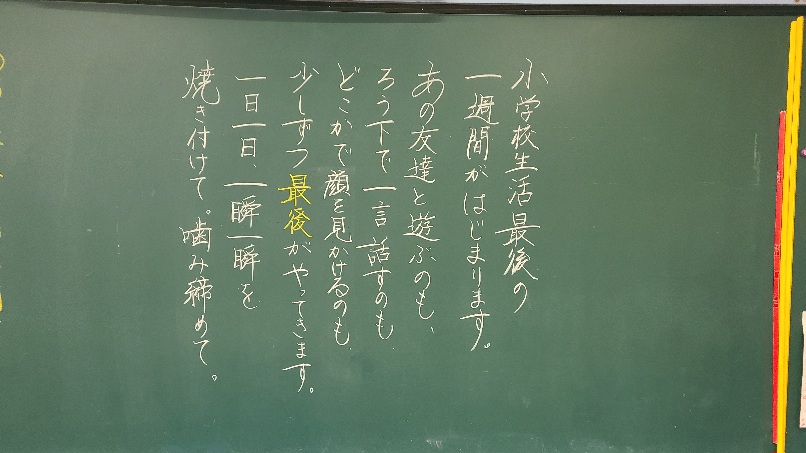 小学校生活最後の
一週間がはじまります。
あの友達と遊ぶのも、
ろう下で一言話すのも、
どこかで顔を見かけるのも、
少しずつ最後がやってきます。
一日一日、一瞬一瞬を
焼き付けて。噛み締めて。